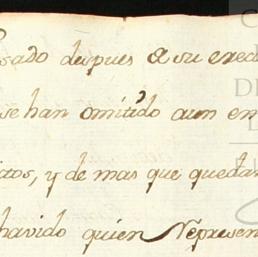 sado despues de su ered
se han omitido aun en
tos, y de mas que quedan
havido quien Represen